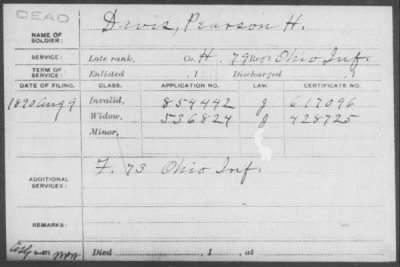 DEAD
NAME OF SOLDIER: Davis, Pearson H.
SERVICE: Late rank, Co. H. 79 Reg't Ohio Inf.
TERM OF SERVICE: Enlisted , 1 Discharged , 1
DATE OF FILING. CLASS. APPLICATION NO. LAW. CERTIFICATE NO.
1890 Aug 9 Invalid, 854442 J 617096
Widow, 536824 J 428725
Minor,
ADDITIONAL SERVICES: F. 73 Ohio Inf.
REMARKS:
Died , 1 , at